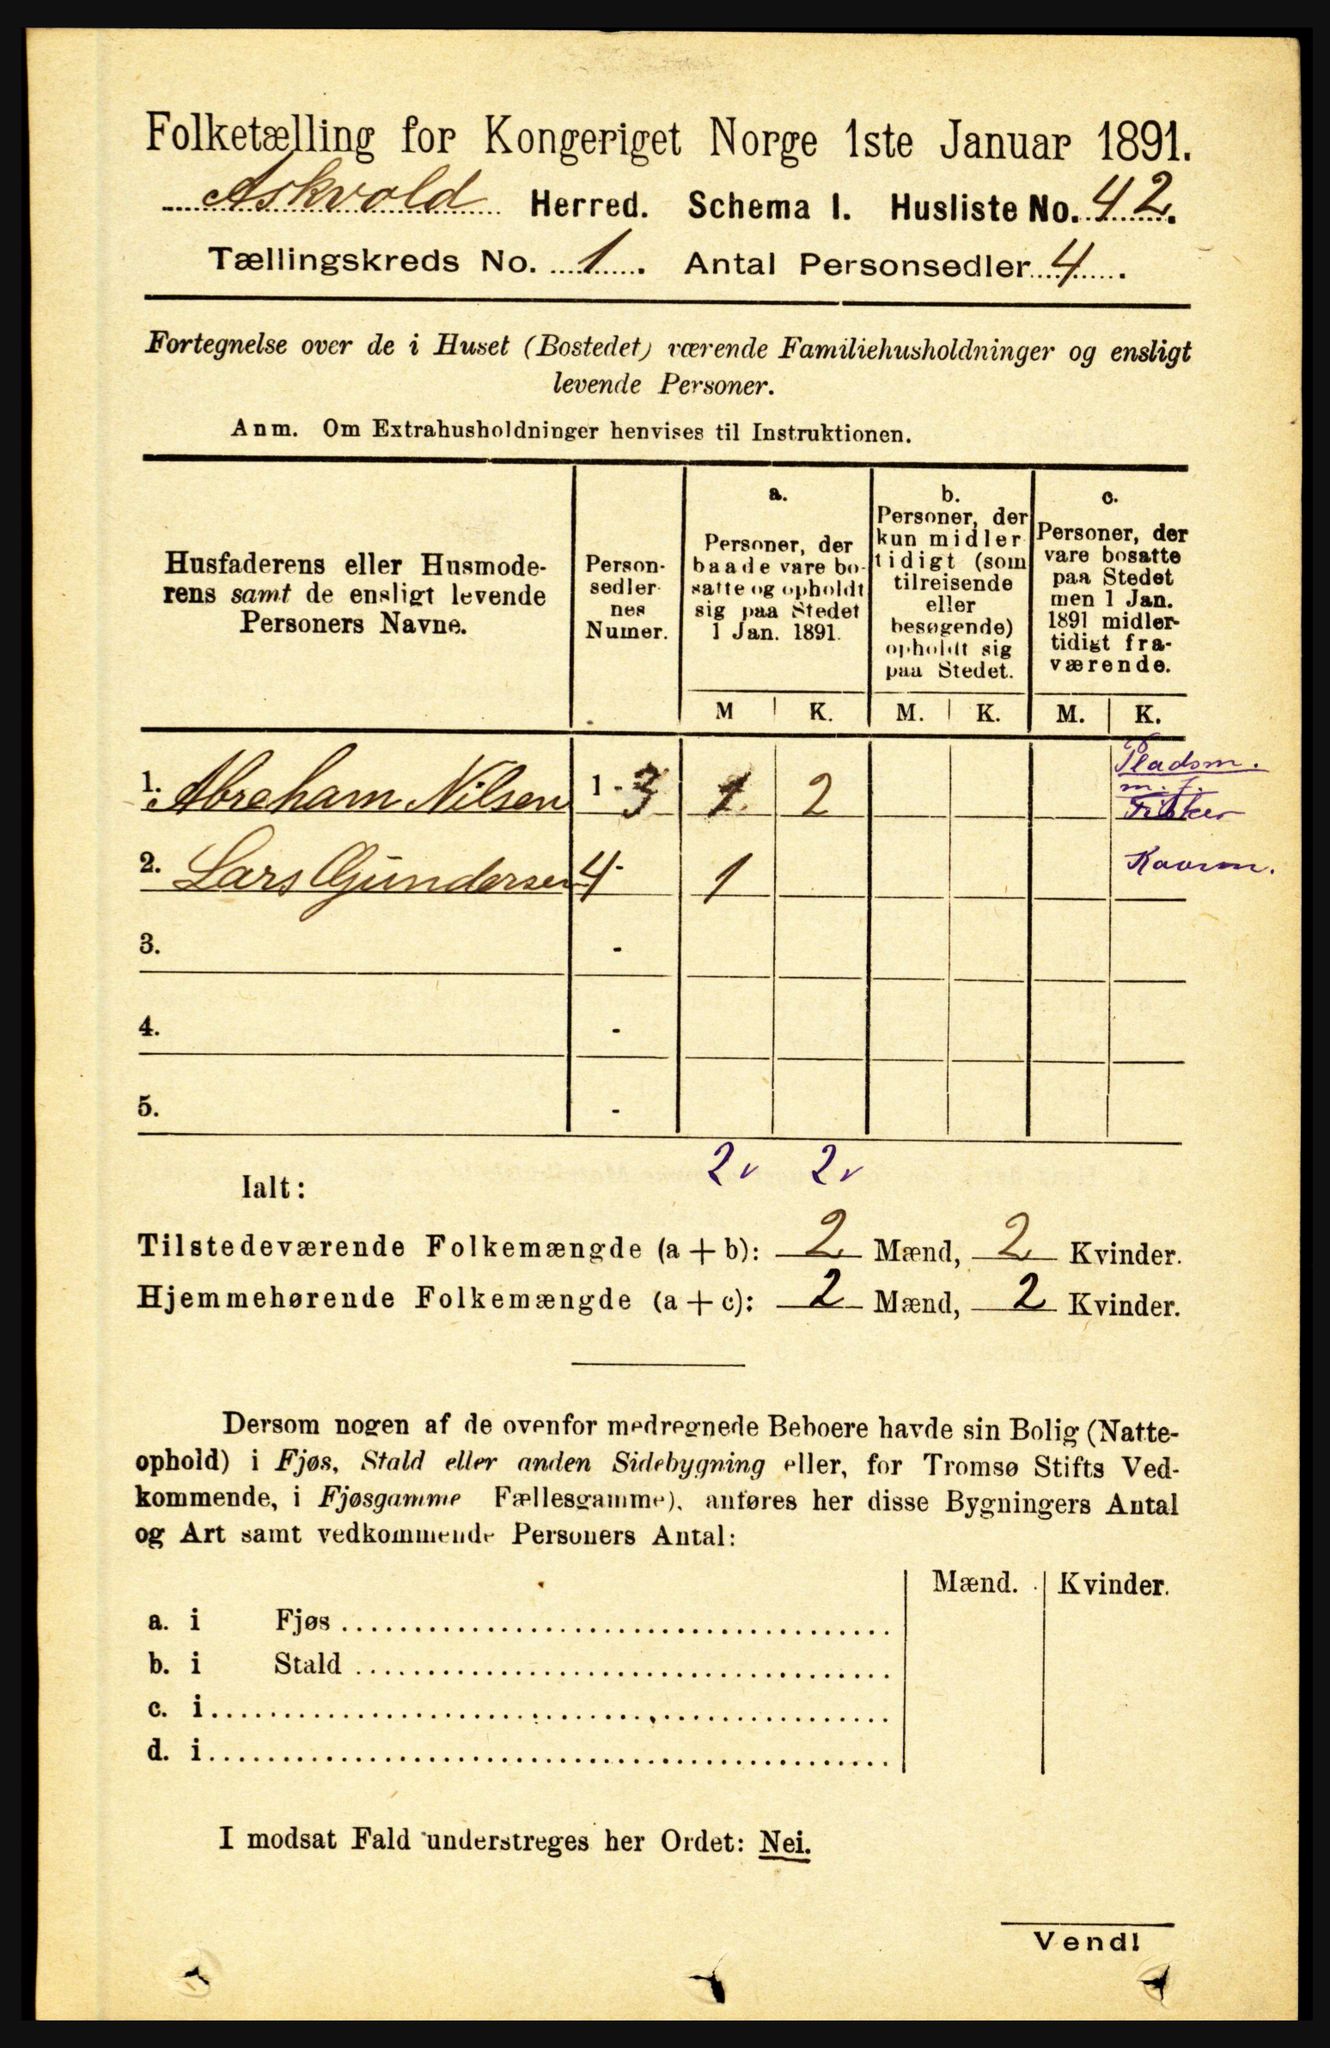 Folketælling for Kongeriget Norge 1ste Januar 1891.
Askvold Herred. Schema I. Husliste No. 42.
Tællingskreds No. 1. Antal Personsedler 4.
Fortegnelse over de i Huset (Bostedet) værende Familiehusholdninger og ensligt
levende Personer.
Anm. Om Extrahusholdninger henvises til Instruktionen.
Husfaderens eller Husmode-
rens samt de ensligt levende
Personers Navne.
Person-
sedler
nes
Numer.
a.
Personer, der
baade vare bo-
satte og opholdt
sig paa Stedet
1 Jan. 1891.
b.
Personer, der
kun midler
tidigt (som
tilreisende
eller
besøgende)
opholdt sig
paa Stedet.
c.
Personer, der
vare bosatte
paa Stedet
men 1 Jan.
1891 midler-
tidigt fra-
værende.
M K. M. K. M. K.
Pladsm.
m. j.
1. Abreham Nilsen 1 - 3 1 2 Fisker
2. Lars Gundersen 4 - 1
3. -
4. -
5. -
2 2
Ialt:
Tilstedeværende Folkemængde (a + b): 2 Mænd, 2 Kvinder.
Hjemmehørende Folkemængde (a + c): 2 Mænd, 2 Kvinder.
Dersom nogen af de ovenfor medregnede Beboere havde sin Bolig (Natte-
ophold) i Fjøs, Stald eller anden Sidebygning eller, for Tromsø Stifts Ved-
kommende, i Fjøsgamme Fællesgamme), anføres her disse Bygningers Antal
og Art samt vedkommende Personers Antal:
Mænd. Kvinder.
a. i Fjøs
b. i Stald
c. i
d. i
I modsat Fald understreges her Ordet: Nei.
Vend!